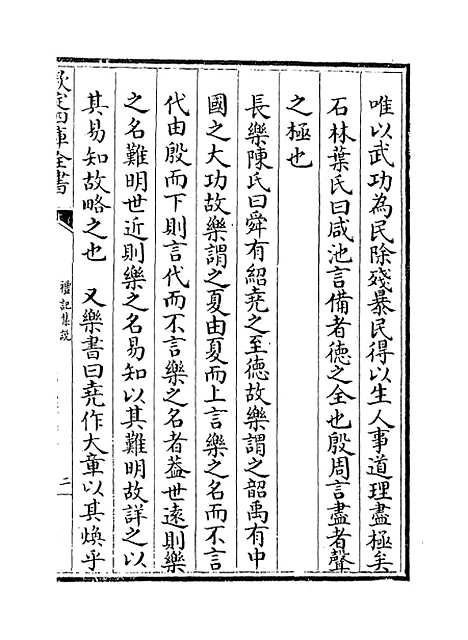 唯以武功為民除殘暴民得以生人事道理盡極矣
石林葉氏曰咸池言備者徳之全也殷周言盡者聲
之極也
長樂陳氏曰舜有紹堯之至徳故樂謂之韶禹有中
國之大功故樂謂之夏由夏而上言樂之名而不言
代由殷而下則言代而不言樂之名者葢世遠則樂
之名難明世近則樂之名易知以其難明故詳之以
其易知故略之也　又樂書曰堯作大章以其煥乎
欽定四庫全書
禮記集説
二